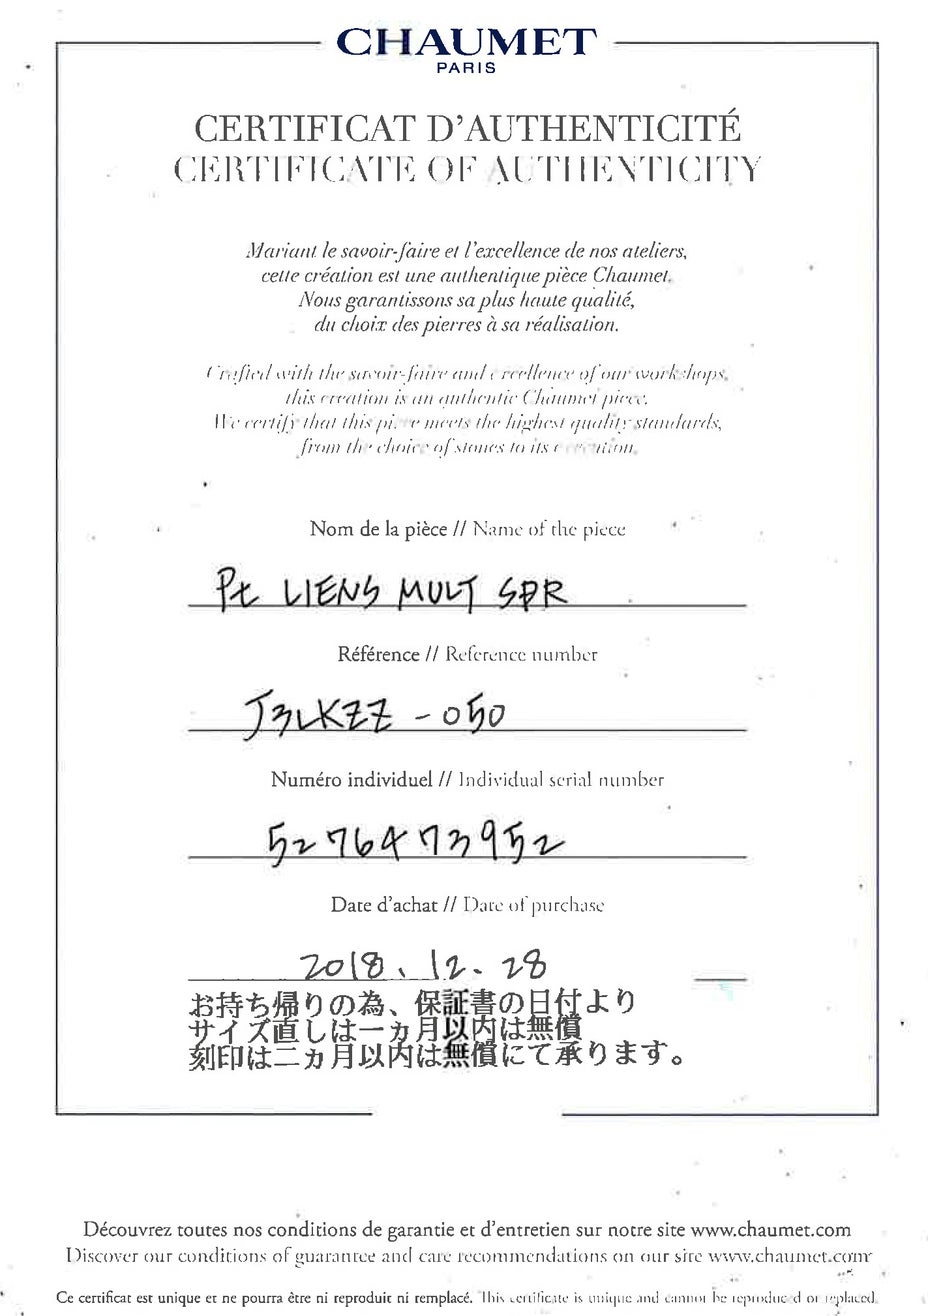 CHAUMET
PARIS
CERTIFICAT D'AUTHENTICITÉ
CERTIFICATE OF AUTHENTICITY
Mariant le savoir-faire et l'excellence de nos ateliers,
cette création est une authentique pièce Chaumet.
Nous garantissons sa plus haute qualité,
du choix des pierres à sa réalisation.
Crafted with the savoir-faire and excellence of our workshops,
this creation is an authentic Chaumet piece.
We certify that this piece meets the highest quality standards,
from the choice of stones to its execution.
Nom de la pièce // Name of the piece
Pt LIENS MULT SPR
Référence // Reference number
J3LKZZ - 050
Numéro individuel // Individual serial number
5276473952
Date d'achat // Date of purchase
2018. 12. 28
お持ち帰りの為、保証書の日付より
サイズ直しは一ヵ月以内は無償
刻印は二ヵ月以内は無償にて承ります。
Découvrez toutes nos conditions de garantie et d'entretien sur notre site www.chaumet.com
Discover our conditions of guarantee and care recommendations on our site www.chaumet.com
Ce certificat est unique et ne pourra être ni reproduit ni remplacé. This certificate is unique and cannot be reproduced or replaced.